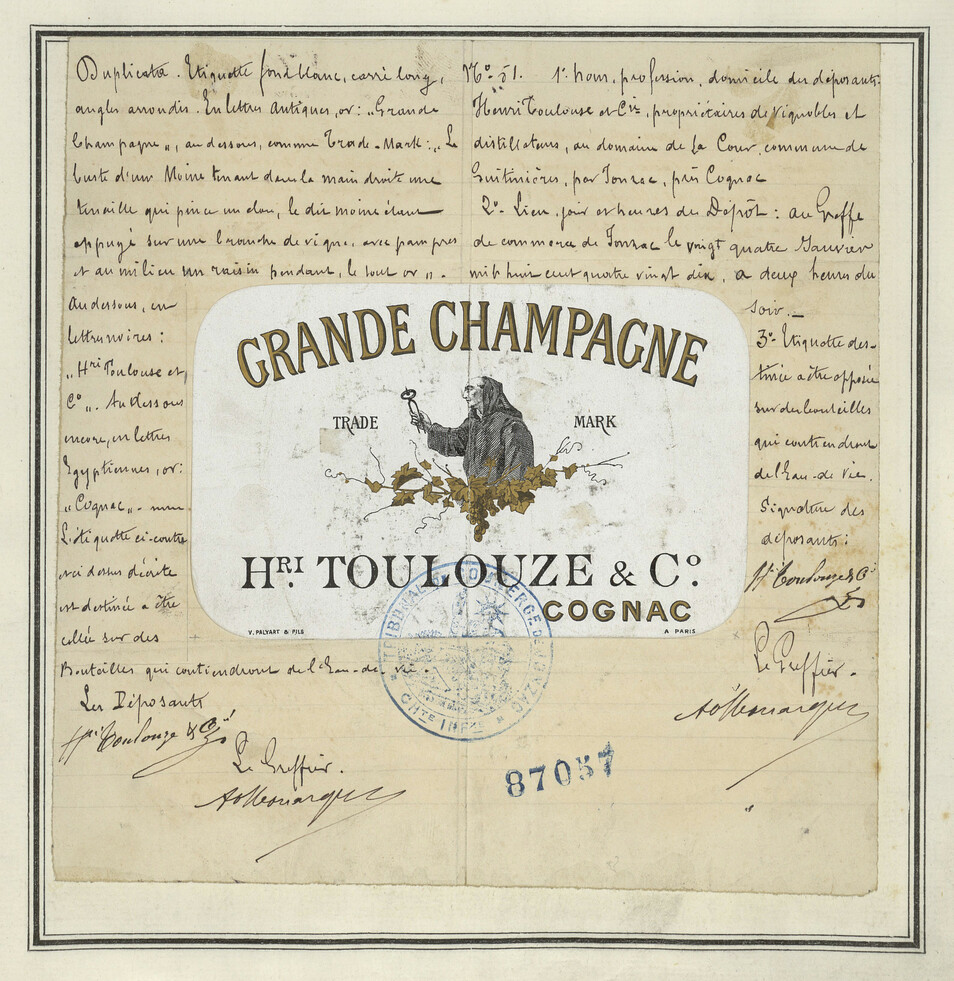 Duplicata. Etiquette fond blanc, carré long,
angles arrondis. En lettres Antiques, or: „Grande
Champagne", au dessous, comme Trade-Mark: „Le
buste d'un Moine tenant dans la main droite une
tenaille qui pince un clou, le dit moine étant
appuyé sur une branche de vigne, avec pampres
et au milieu un raisin pendant, le tout or".
Au dessous, en
lettres noires:
„Hri Toulouse et
Co". Au dessous
encore, en lettres
Egyptiennes, or:
„Cognac".
L'étiquette ci-contre
et ci dessus décrite
est destinée a être
collée sur des
Bouteilles qui contiendront de l'Eau-de-vie.
Les Déposants
Hri Toulouze & Co
Le Greffier.
No 51. 1o nom, profession, domicile des déposants:
Henri Toulouse et Cie, propriétaires de vignobles et
distillateurs, au domaine de La Cour, commune de
Guitinières, par Jonzac, près Cognac
2o Lieu, jour et heures du Dépôt: au Greffe
de commerce de Jonzac le vingt quatre Janvier
mil huit cent quatre vingt dix, a deux heures du
soir.
3o Etiquette des-
tinée a être apposée
sur des bouteilles
qui contiendront
de l'Eau-de-vie.
Signature des
déposants:
Hri Toulouze & Co
Le Greffier.
GRANDE CHAMPAGNE
TRADE MARK
HRI TOULOUZE & Co
COGNAC
V. PALYART & FILS A PARIS
87057